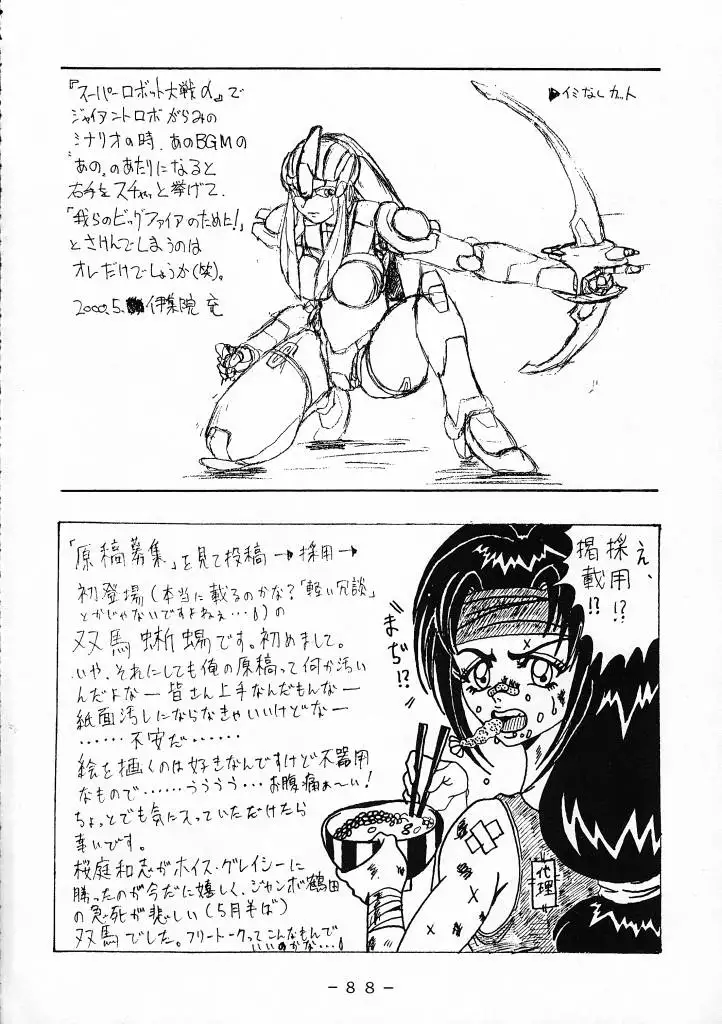 『スーパーロボット大戦α』で
ジャイアントロボがらみの
シナリオの時、あのBGMの
"あの"のあたりになると
右手をスチャッと挙げて、
「我らのビッグファイアのために!」
とさけんでしまうのは
オレだけでしょうか(笑)。
2000.5. 伊集院
▶イミなしカット
「原稿募集」を見て投稿→採用→
初登場(本当に載るのかな?「軽い冗談」
とかじゃないですよねぇ…!)の
双馬蜥蜴です。初めまして。
いや、それにしても俺の原稿って何か汚い
んだよなー皆さん上手なんだもんなー
紙面汚しにならなきゃいいけどなー
……不安だ……
絵を描くのは好きなんですけど不器用
なもので……ううう…お腹痛ぁ〜い!
ちょっとでも気に入っていただけたら
幸いです。
桜庭和志がホイス・グレイシーに
勝ったのが今だに嬉しく、ジャンボ鶴田
の急死が悲しい(5月半ば)
双馬でした。フリートークってこんなもんで
いいのかな…!
え、
採用!?
掲載!?
まぢ!?
代理
-88-